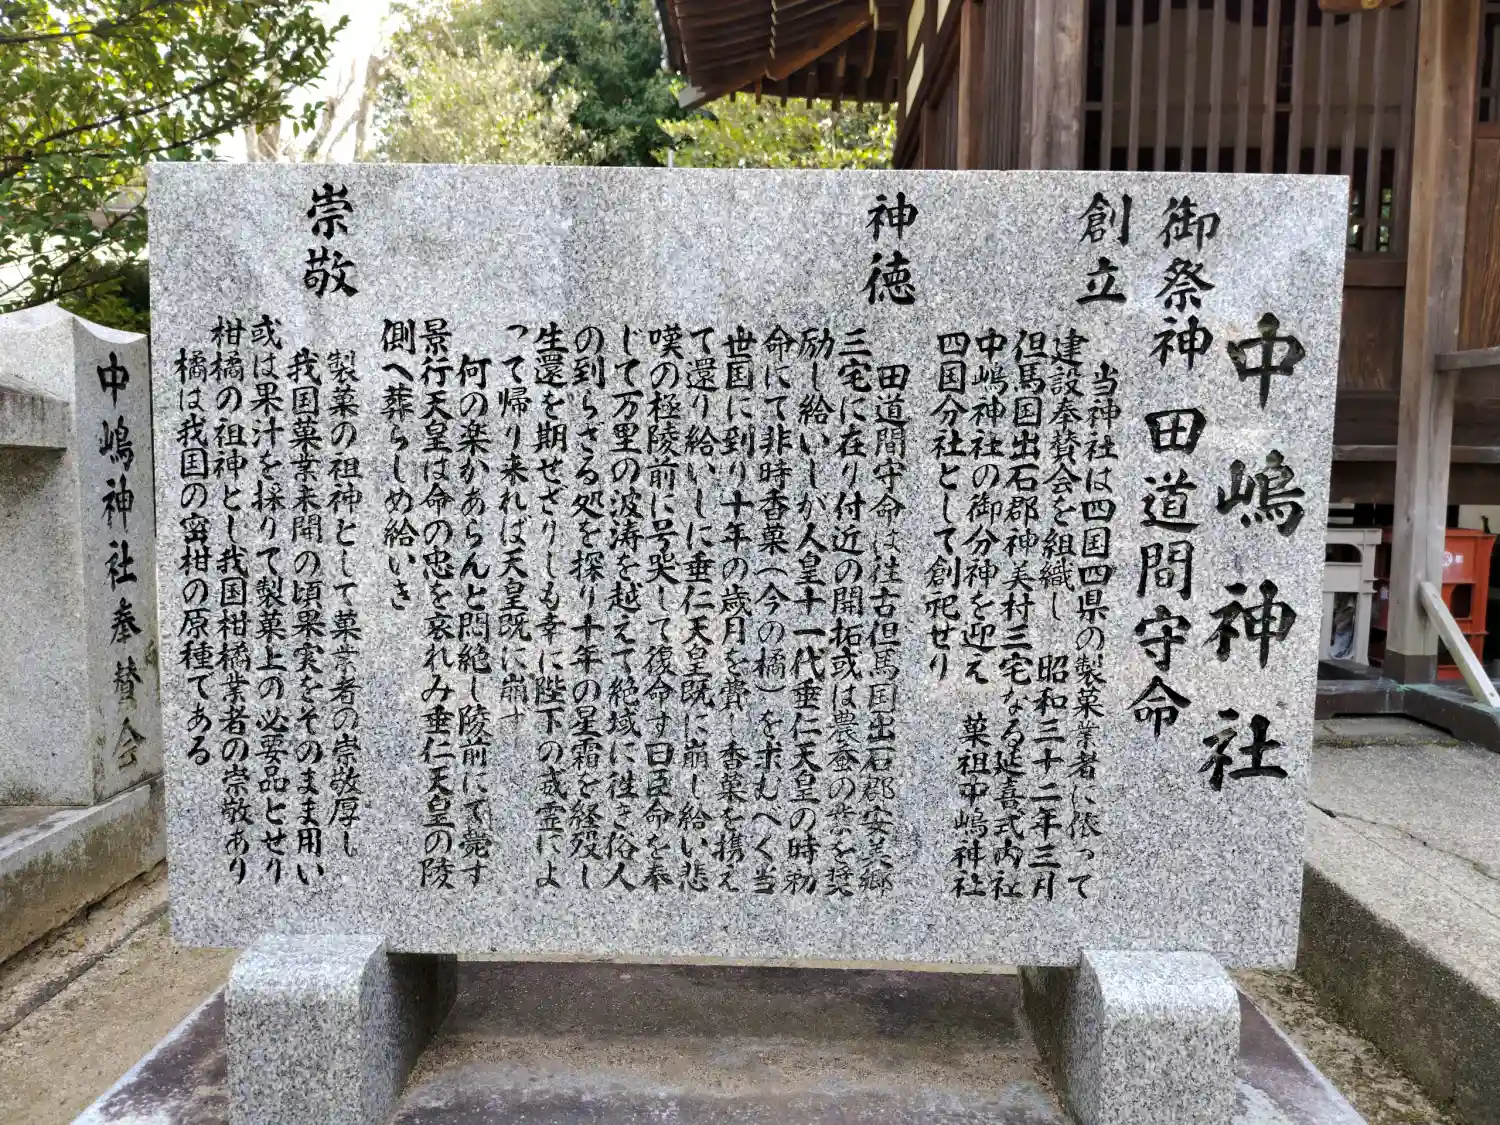 中嶋神社
御祭神 田道間守命
創立
当神社は四国四県の製菓業者に依って
建設奉賛会を組織し 昭和三十二年三月
但馬国出石郡神美村三宅なる延喜式内社
中嶋神社の御分神を迎え 菓祖中嶋神社
四国分社として創祀せり
神徳
田道間守命は往古但馬国出石郡安美郷
三宅に在り付近の開拓或は農蚕の業を奨
励し給いしが人皇十一代垂仁天皇の時勅
命にて非時香菓(今の橘)を求むべく当
世国に到り十年の歳月を費し香菓を携え
て還り給いしに垂仁天皇既に崩じ給い悲
嘆の極陵前に号哭して復命す曰臣命を奉
じて万里の波涛を越えて絶域に往き俗人
の到らさる処を探り十年の星霜を経歿し
生還を期せざりしも幸に陛下の威霊によ
って帰り来れば天皇既に崩ず
何の楽かあらんと悶絶し陵前にて薨す
景行天皇は命の忠を哀れみ垂仁天皇の陵
側へ葬らしめ給いき
崇敬
製菓の祖神として菓業者の崇敬厚し
我国菓業未開の頃果実をそのまま用い
或は果汁を採りて製菓上の必要品とせり
柑橘の祖神とし我国柑橘業者の崇敬あり
橘は我国の蜜柑の原種である
中嶋神社奉賛会